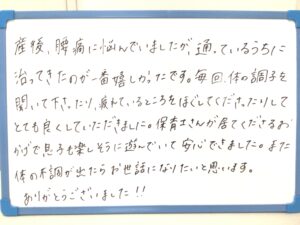 産後、腰痛に悩んでいましたが通っているうちに
治ってきたのが一番嬉しかったです。毎回、体の調子を
聞いて下さったり、疲れているところをほぐしてくださったりして
とても良くしていただきました。保育士さんが居てくださるお
かげで息子も楽しそうに遊んでいて安心できました。また
体の不調が出たらお世話になりたいと思います。
ありがとうございました!!